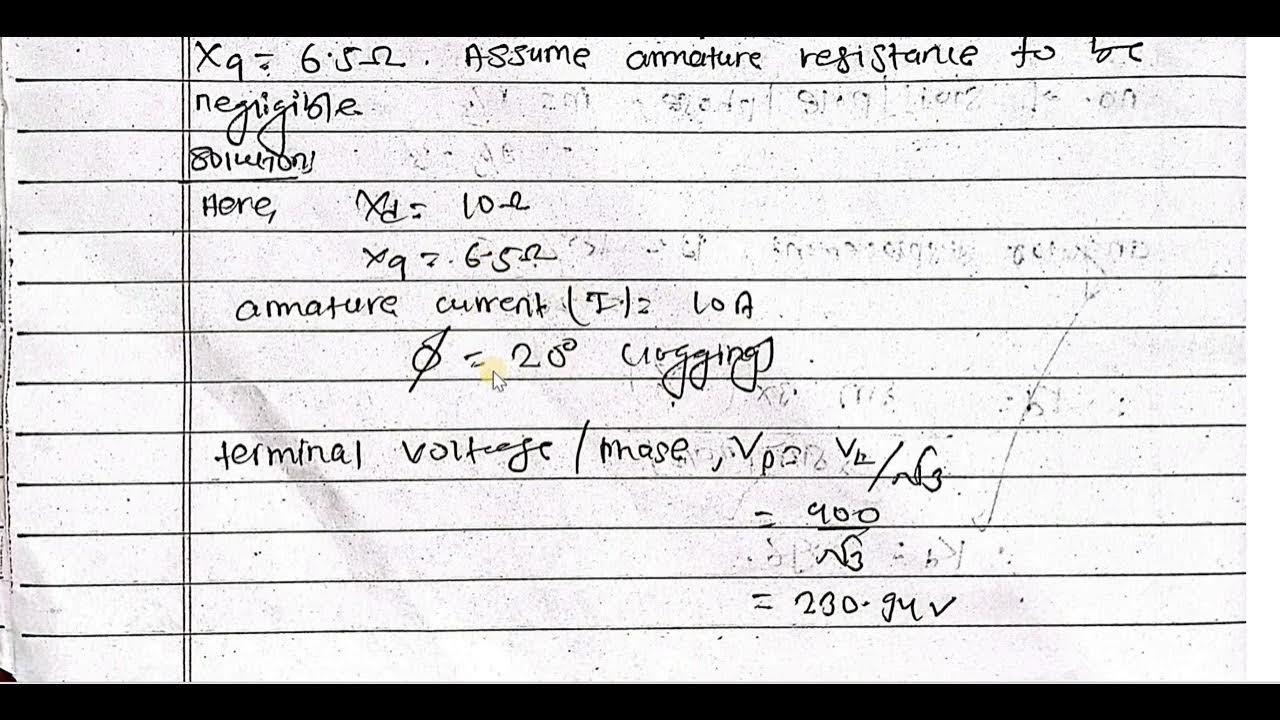 Xq = 6.5Ω. Assume armature resistance to be
negligible
Solution
Here, Xd = 10Ω
Xq = 6.5Ω
armature current (I) = 10A
ϕ = 20° (lagging)
terminal voltage / phase, Vp = VL/√3
= 400/√3
= 230.94V